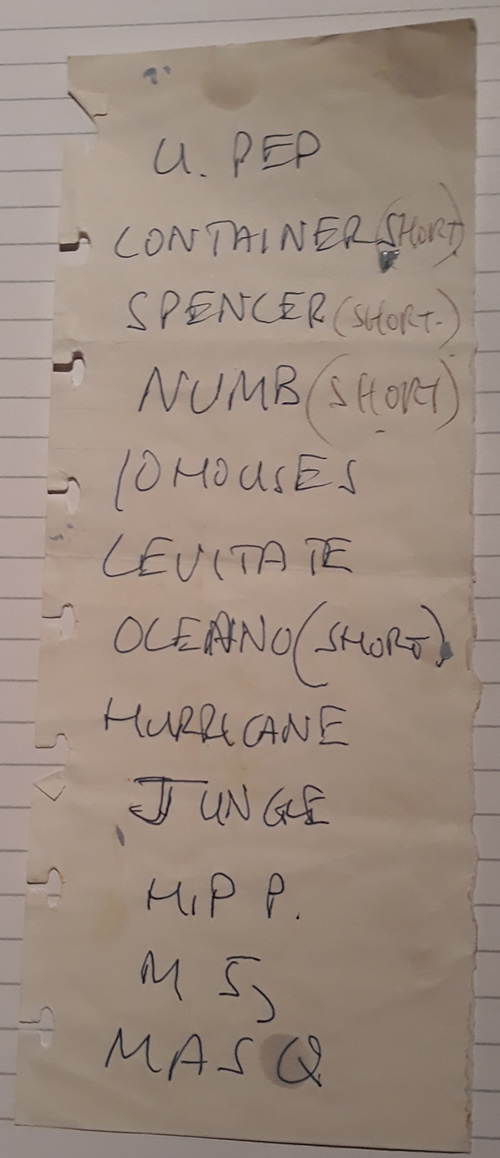 U. PEP
CONTAINER (SHORT)
SPENCER (SHORT.)
NUMB (SHORT)
10 HOUSES
LEVITATE
OCEANO (SHORT)
HURRICANE
JUNGLE
HIP P.
M 5,
MASQ